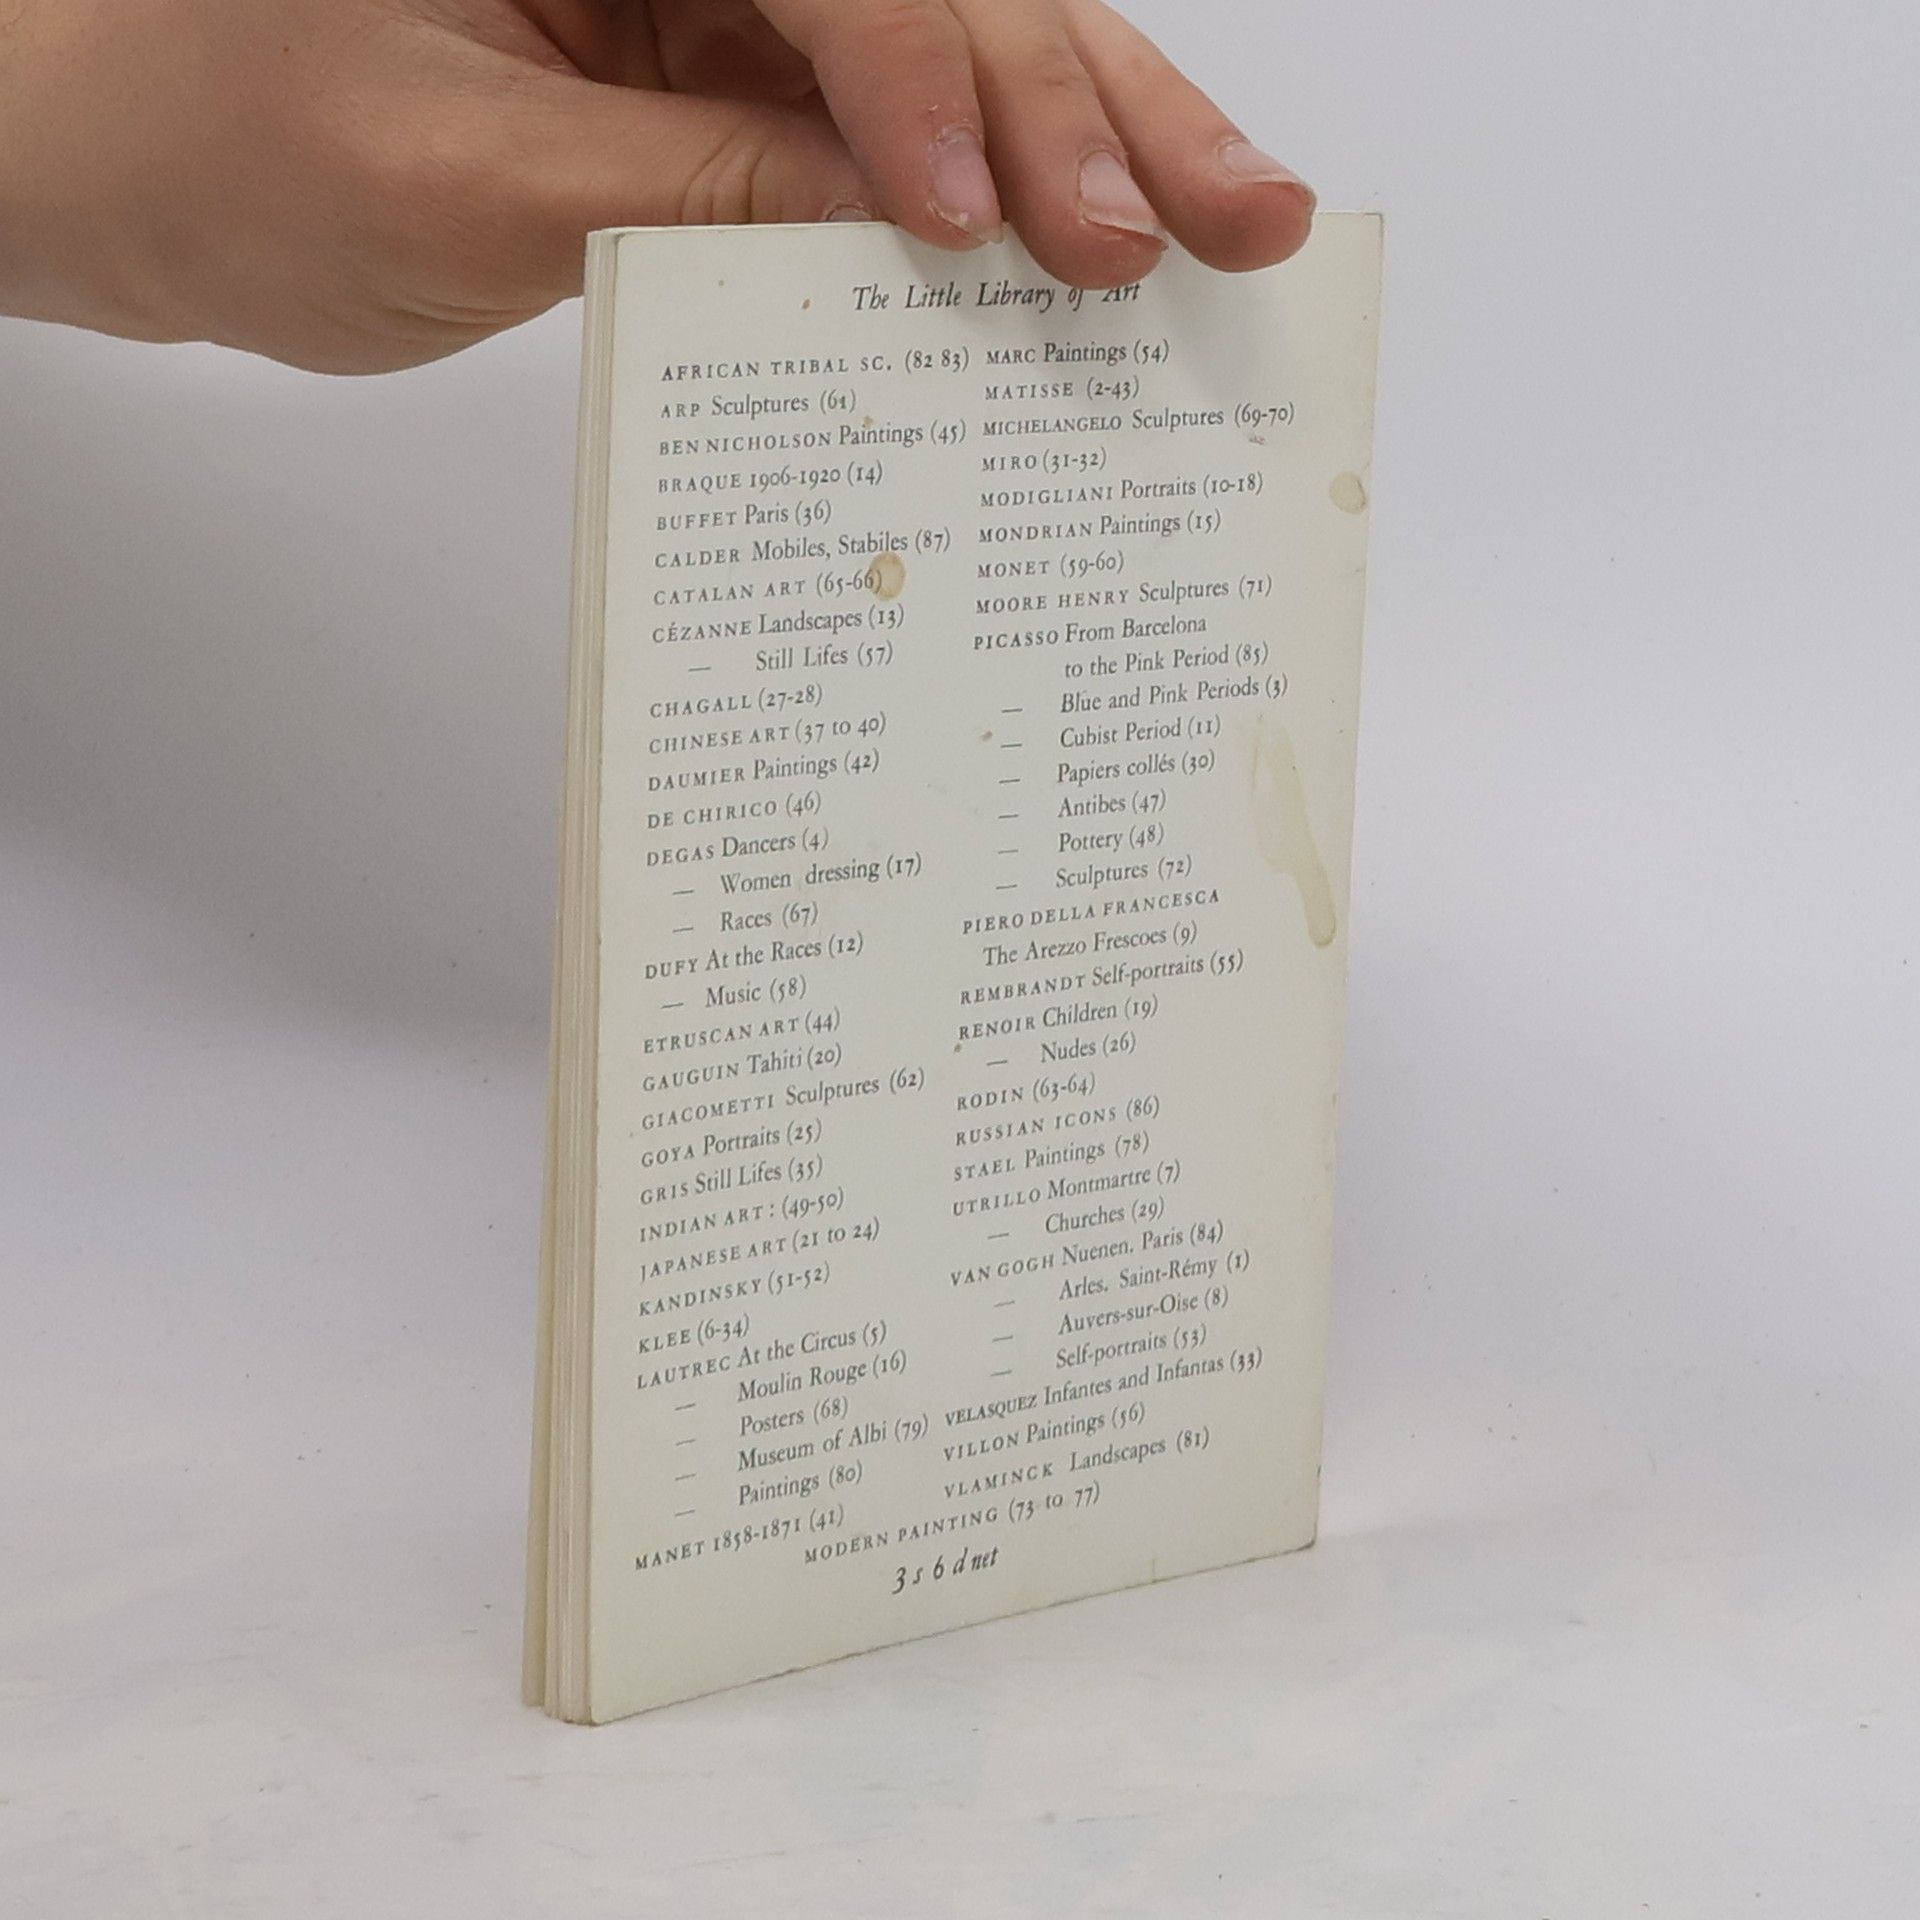 The Little Library of Art
AFRICAN TRIBAL SC. (82 83)
ARP Sculptures (61)
BEN NICHOLSON Paintings (45)
BRAQUE 1906-1920 (14)
BUFFET Paris (36)
CALDER Mobiles, Stabiles (87)
CATALAN ART (65-66)
CÉZANNE Landscapes (13)
— Still Lifes (57)
CHAGALL (27-28)
CHINESE ART (37 to 40)
DAUMIER Paintings (42)
DE CHIRICO (46)
DEGAS Dancers (4)
— Women dressing (17)
— Races (67)
DUFY At the Races (12)
— Music (58)
ETRUSCAN ART (44)
GAUGUIN Tahiti (20)
GIACOMETTI Sculptures (62)
GOYA Portraits (25)
GRIS Still Lifes (35)
INDIAN ART : (49-50)
JAPANESE ART (21 to 24)
KANDINSKY (51-52)
KLEE (6-34)
LAUTREC At the Circus (5)
— Moulin Rouge (16)
— Posters (68)
— Museum of Albi (79)
— Paintings (80)
MANET 1858-1871 (41)
MARC Paintings (54)
MATISSE (2-43)
MICHELANGELO Sculptures (69-70)
MIRO (31-32)
MODIGLIANI Portraits (10-18)
MONDRIAN Paintings (15)
MONET (59-60)
MOORE HENRY Sculptures (71)
PICASSO From Barcelona
to the Pink Period (85)
— Blue and Pink Periods (3)
— Cubist Period (11)
— Papiers collés (30)
— Antibes (47)
— Pottery (48)
— Sculptures (72)
PIERO DELLA FRANCESCA
The Arezzo Frescoes (9)
REMBRANDT Self-portraits (55)
RENOIR Children (19)
— Nudes (26)
RODIN (63-64)
RUSSIAN ICONS (86)
STAEL Paintings (78)
UTRILLO Montmartre (7)
— Churches (29)
VAN GOGH Nuenen. Paris (84)
— Arles. Saint-Rémy (1)
— Auvers-sur-Oise (8)
— Self-portraits (53)
VELASQUEZ Infantes and Infantas (33)
VILLON Paintings (56)
VLAMINCK Landscapes (81)
MODERN PAINTING (73 to 77)
3 s 6 d net